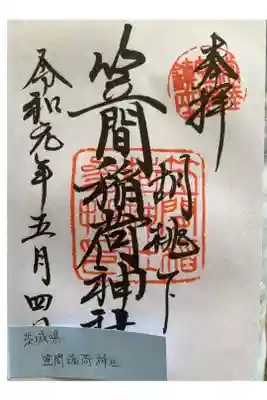 奉拝
胡桃下
笠間稲荷神社
令和元年五月四日
茨城県
笠間稲荷神社